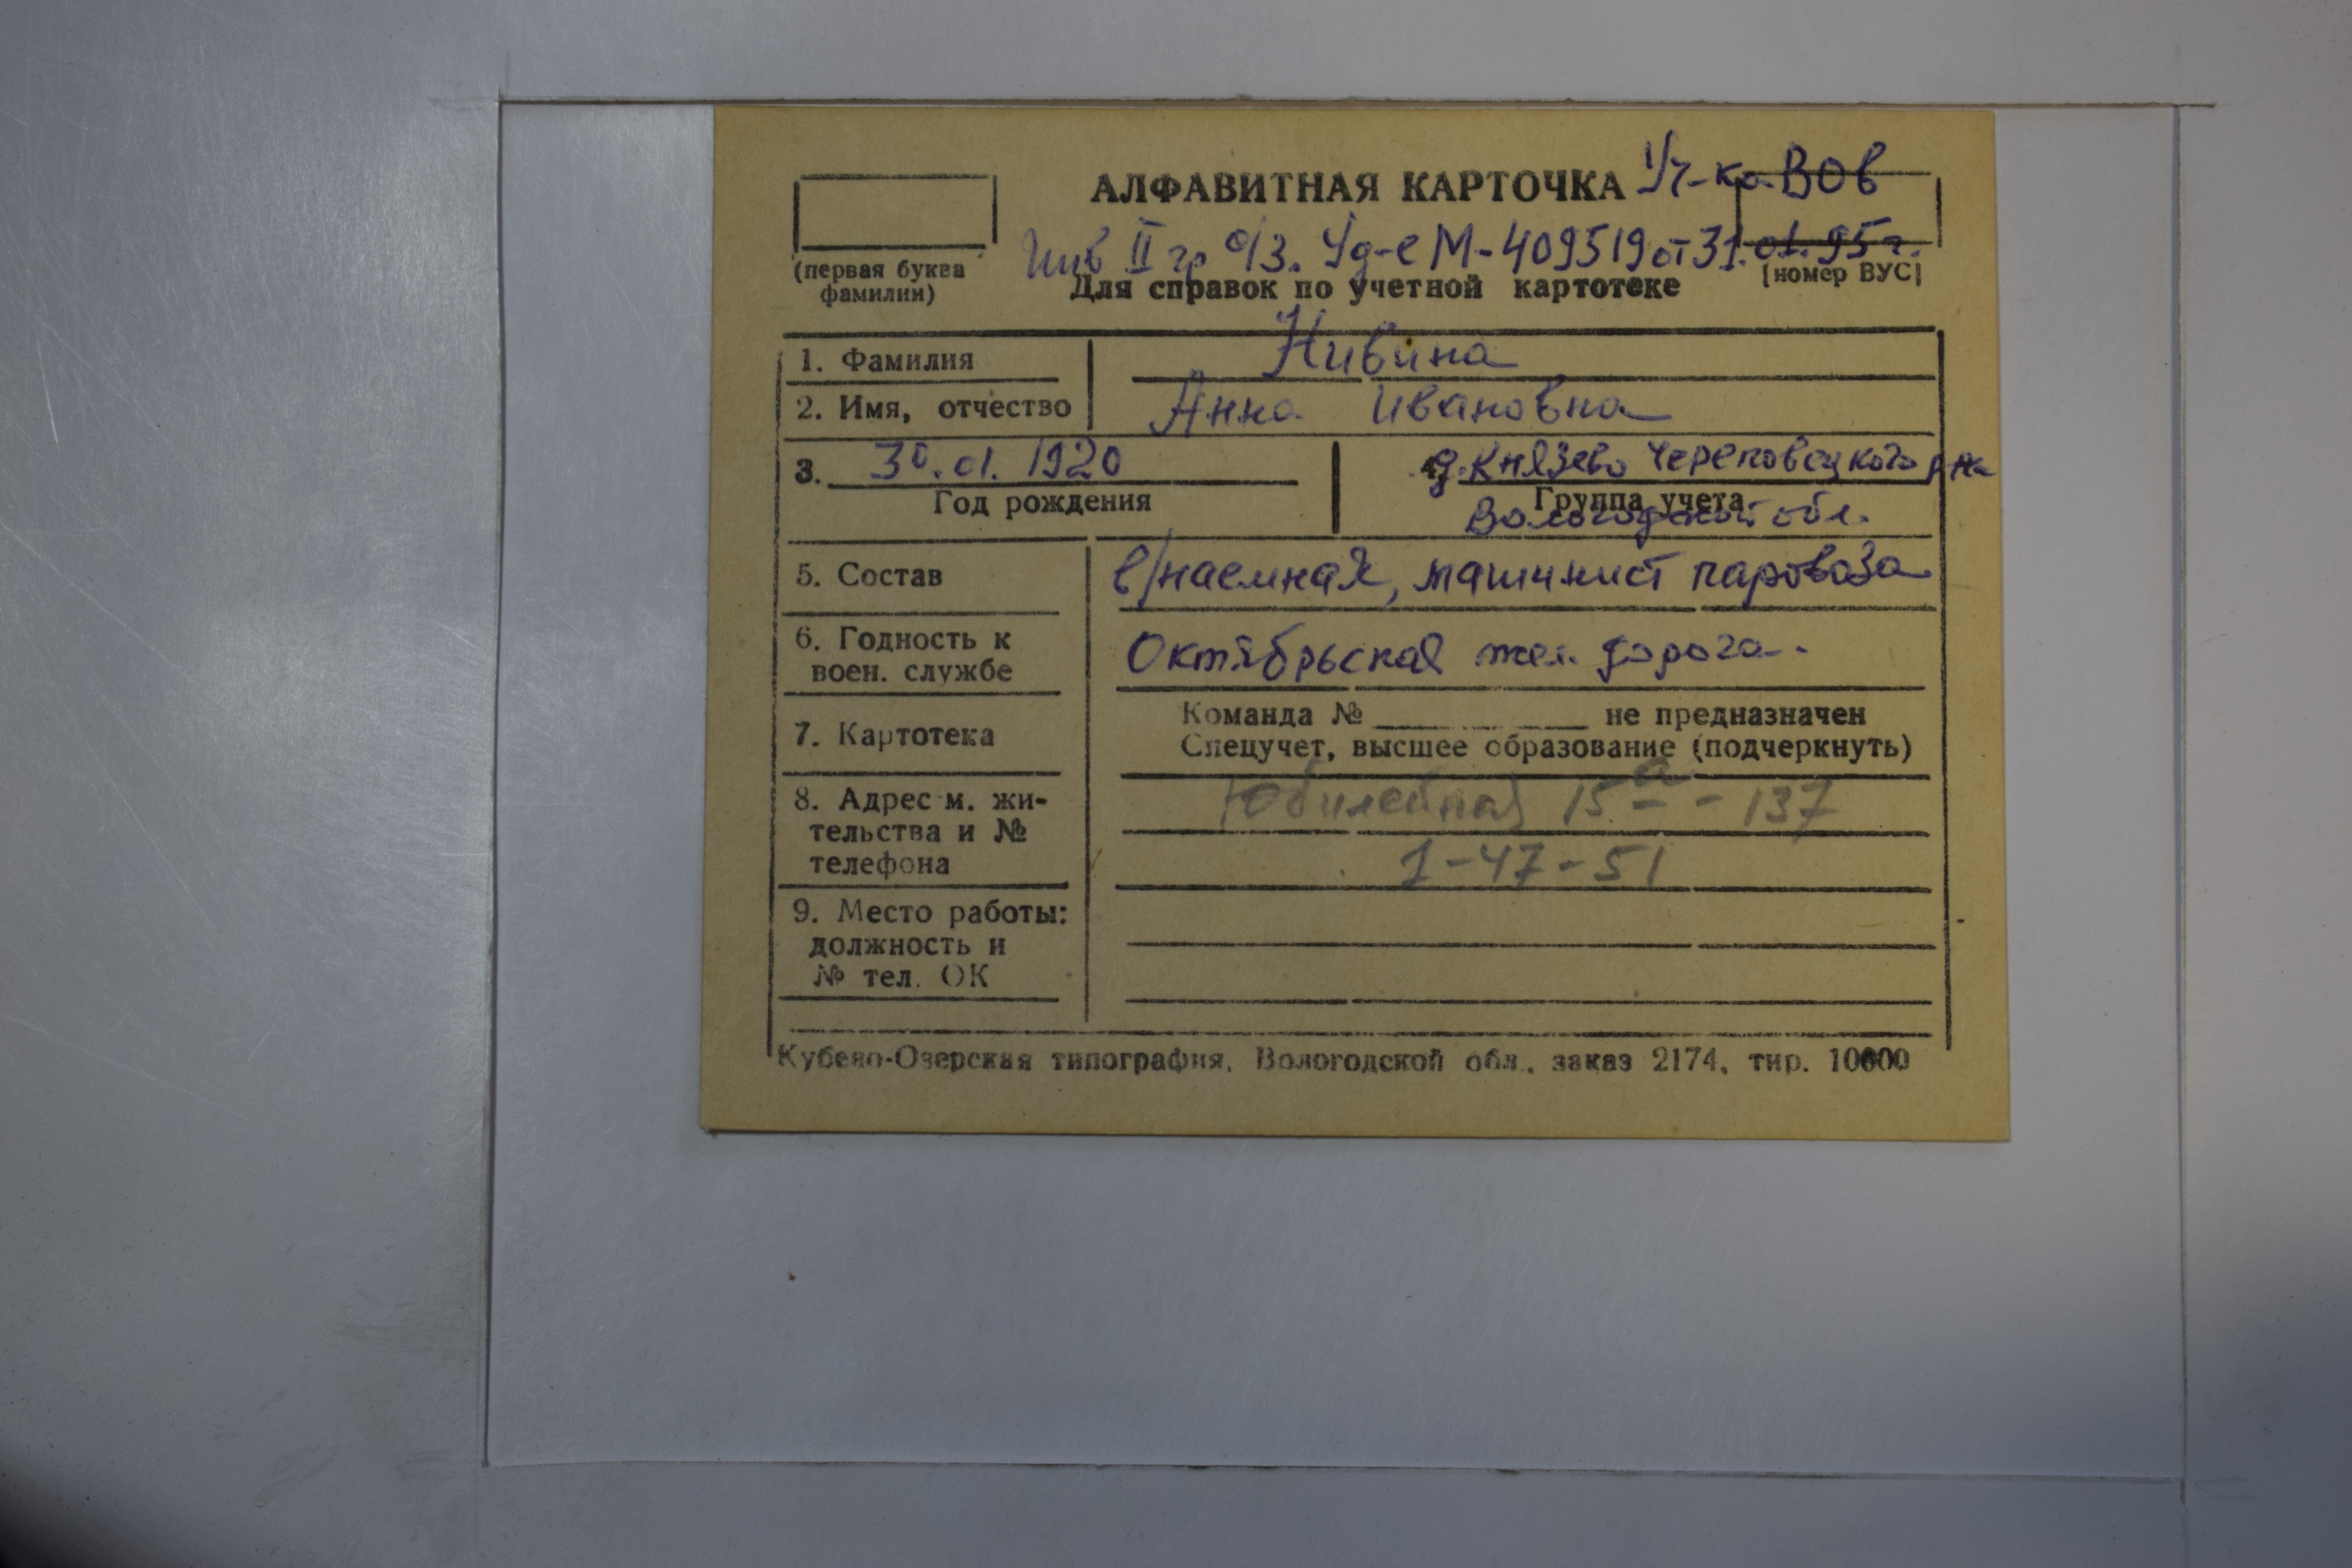 АЛФАВИТНАЯ КАРТОЧКА Уч-ка ВОв
Инв II гр о/з. Уд-е М-409519 от 31.01.95г.
(первая буква фамилии)
Для справок по учетной картотеке
[номер ВУС]
1. Фамилия Нивина
2. Имя, отчество Анна Ивановна
3. 30.01.1920
Год рождения
4. д. Князево Череповецкого р-на
Группа учета
Вологодской обл.
5. Состав в/наемная, машинист паровоза
6. Годность к воен. службе Октябрьская жел. дорога.
7. Картотека
Команда № не предназначен
Спецучет, высшее образование (подчеркнуть)
8. Адрес м. жи-
тельства и №
телефона
Юбилейная 15а - 137
1-47-51
9. Место работы:
должность и
№ тел. ОК
Кубено-Озерская типография, Вологодской обл., заказ 2174, тир. 10000